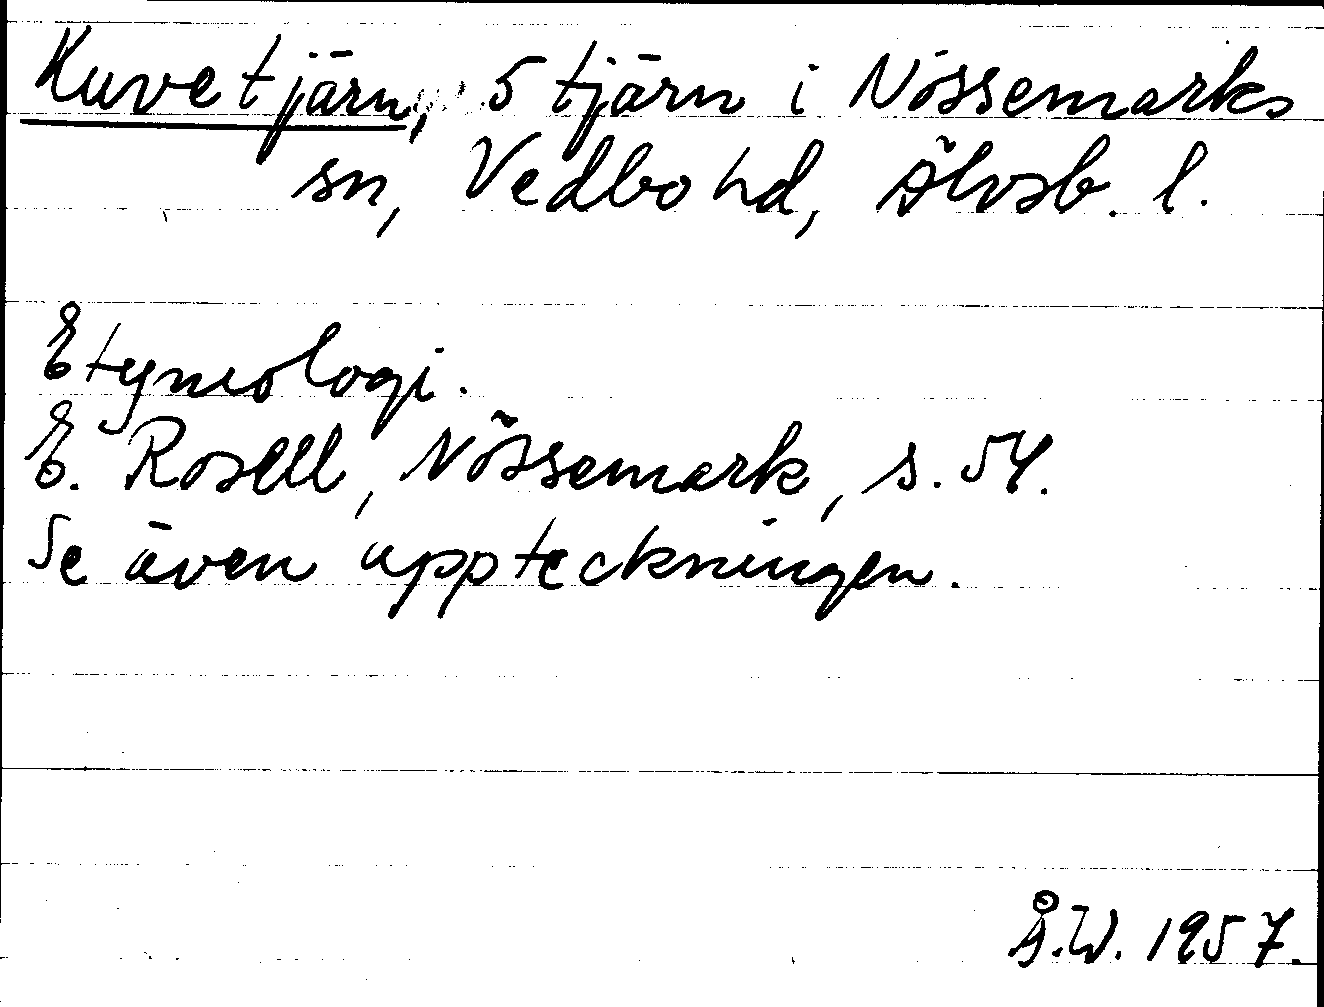 Kuvetjärn, 5 tjärn i Nössemarks
sn, Vedbo hd, Älvsb. l.
Etymologi.
E. Rosell, Nössemark, s. 54.
Se även uppteckningen.
Å.W. 1957.